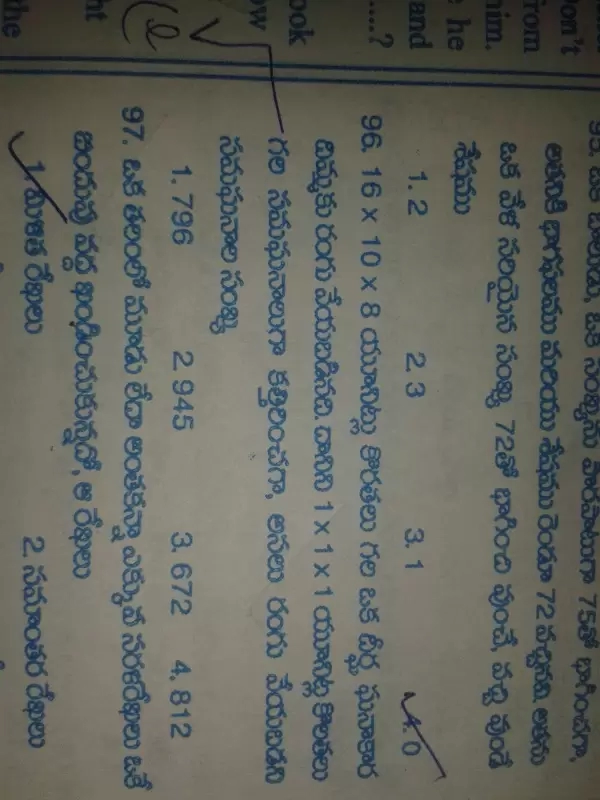 Don't
from
him.
e he
and
.....?
ook
ow
ht
the
95. ఒక బాలుడు, ఒక సంఖ్యను పొరపాటుగా 75తో భాగించగా,
అతనికి భాగఫలము మరియు శేషము రెండూ 72 వచ్చినవి. అతను
ఒక వేళ సరియైన సంఖ్య 72తో భాగించి వుంటే, వచ్చి వుండే
శేషము
1. 2 2. 3 3. 1 4. 0
96. 16 x 10 x 8 యూనిట్లు కొలతలు గల ఒక దీర్ఘ ఘనాకార
దిమ్మకు రంగు వేయబడినది. దానిని 1 x 1 x 1 యూనిట్ల కొలతలు
గల సమఘనాలుగా కత్తిరించగా, అసలు రంగు వేయబడని
సమఘనాల సంఖ్య
1. 796 2 945 3. 672 4, 812
97. ఒక తలంలో మూడు లేదా అంతకన్నా ఎక్కువ సరళరేఖలు ఒకే
బిందువు వద్ద ఖండించుకున్నచో, ఆ రేఖలు
1. మిళిత రేఖలు 2. సమాంతర రేఖలు